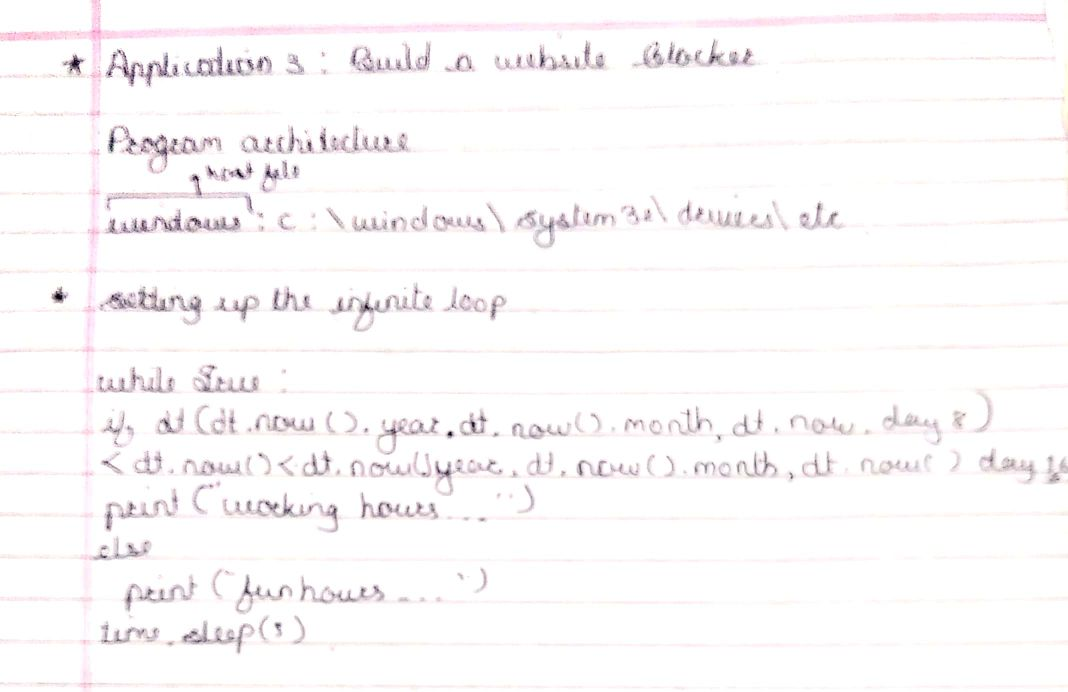 * Application 3 : Build a website Blocker
Program architecture
host file
windows : c : \windows\ system32\ drivers\ etc
* setting up the infinite loop
while True :
if dt (dt.now (). year, dt. now(). month, dt. now. day 8)
< dt. now() < dt. now()year, dt. now(). month, dt. now() day 16
print ("working hours... ")
else
print ("fun hours .... ")
time. sleep(5)